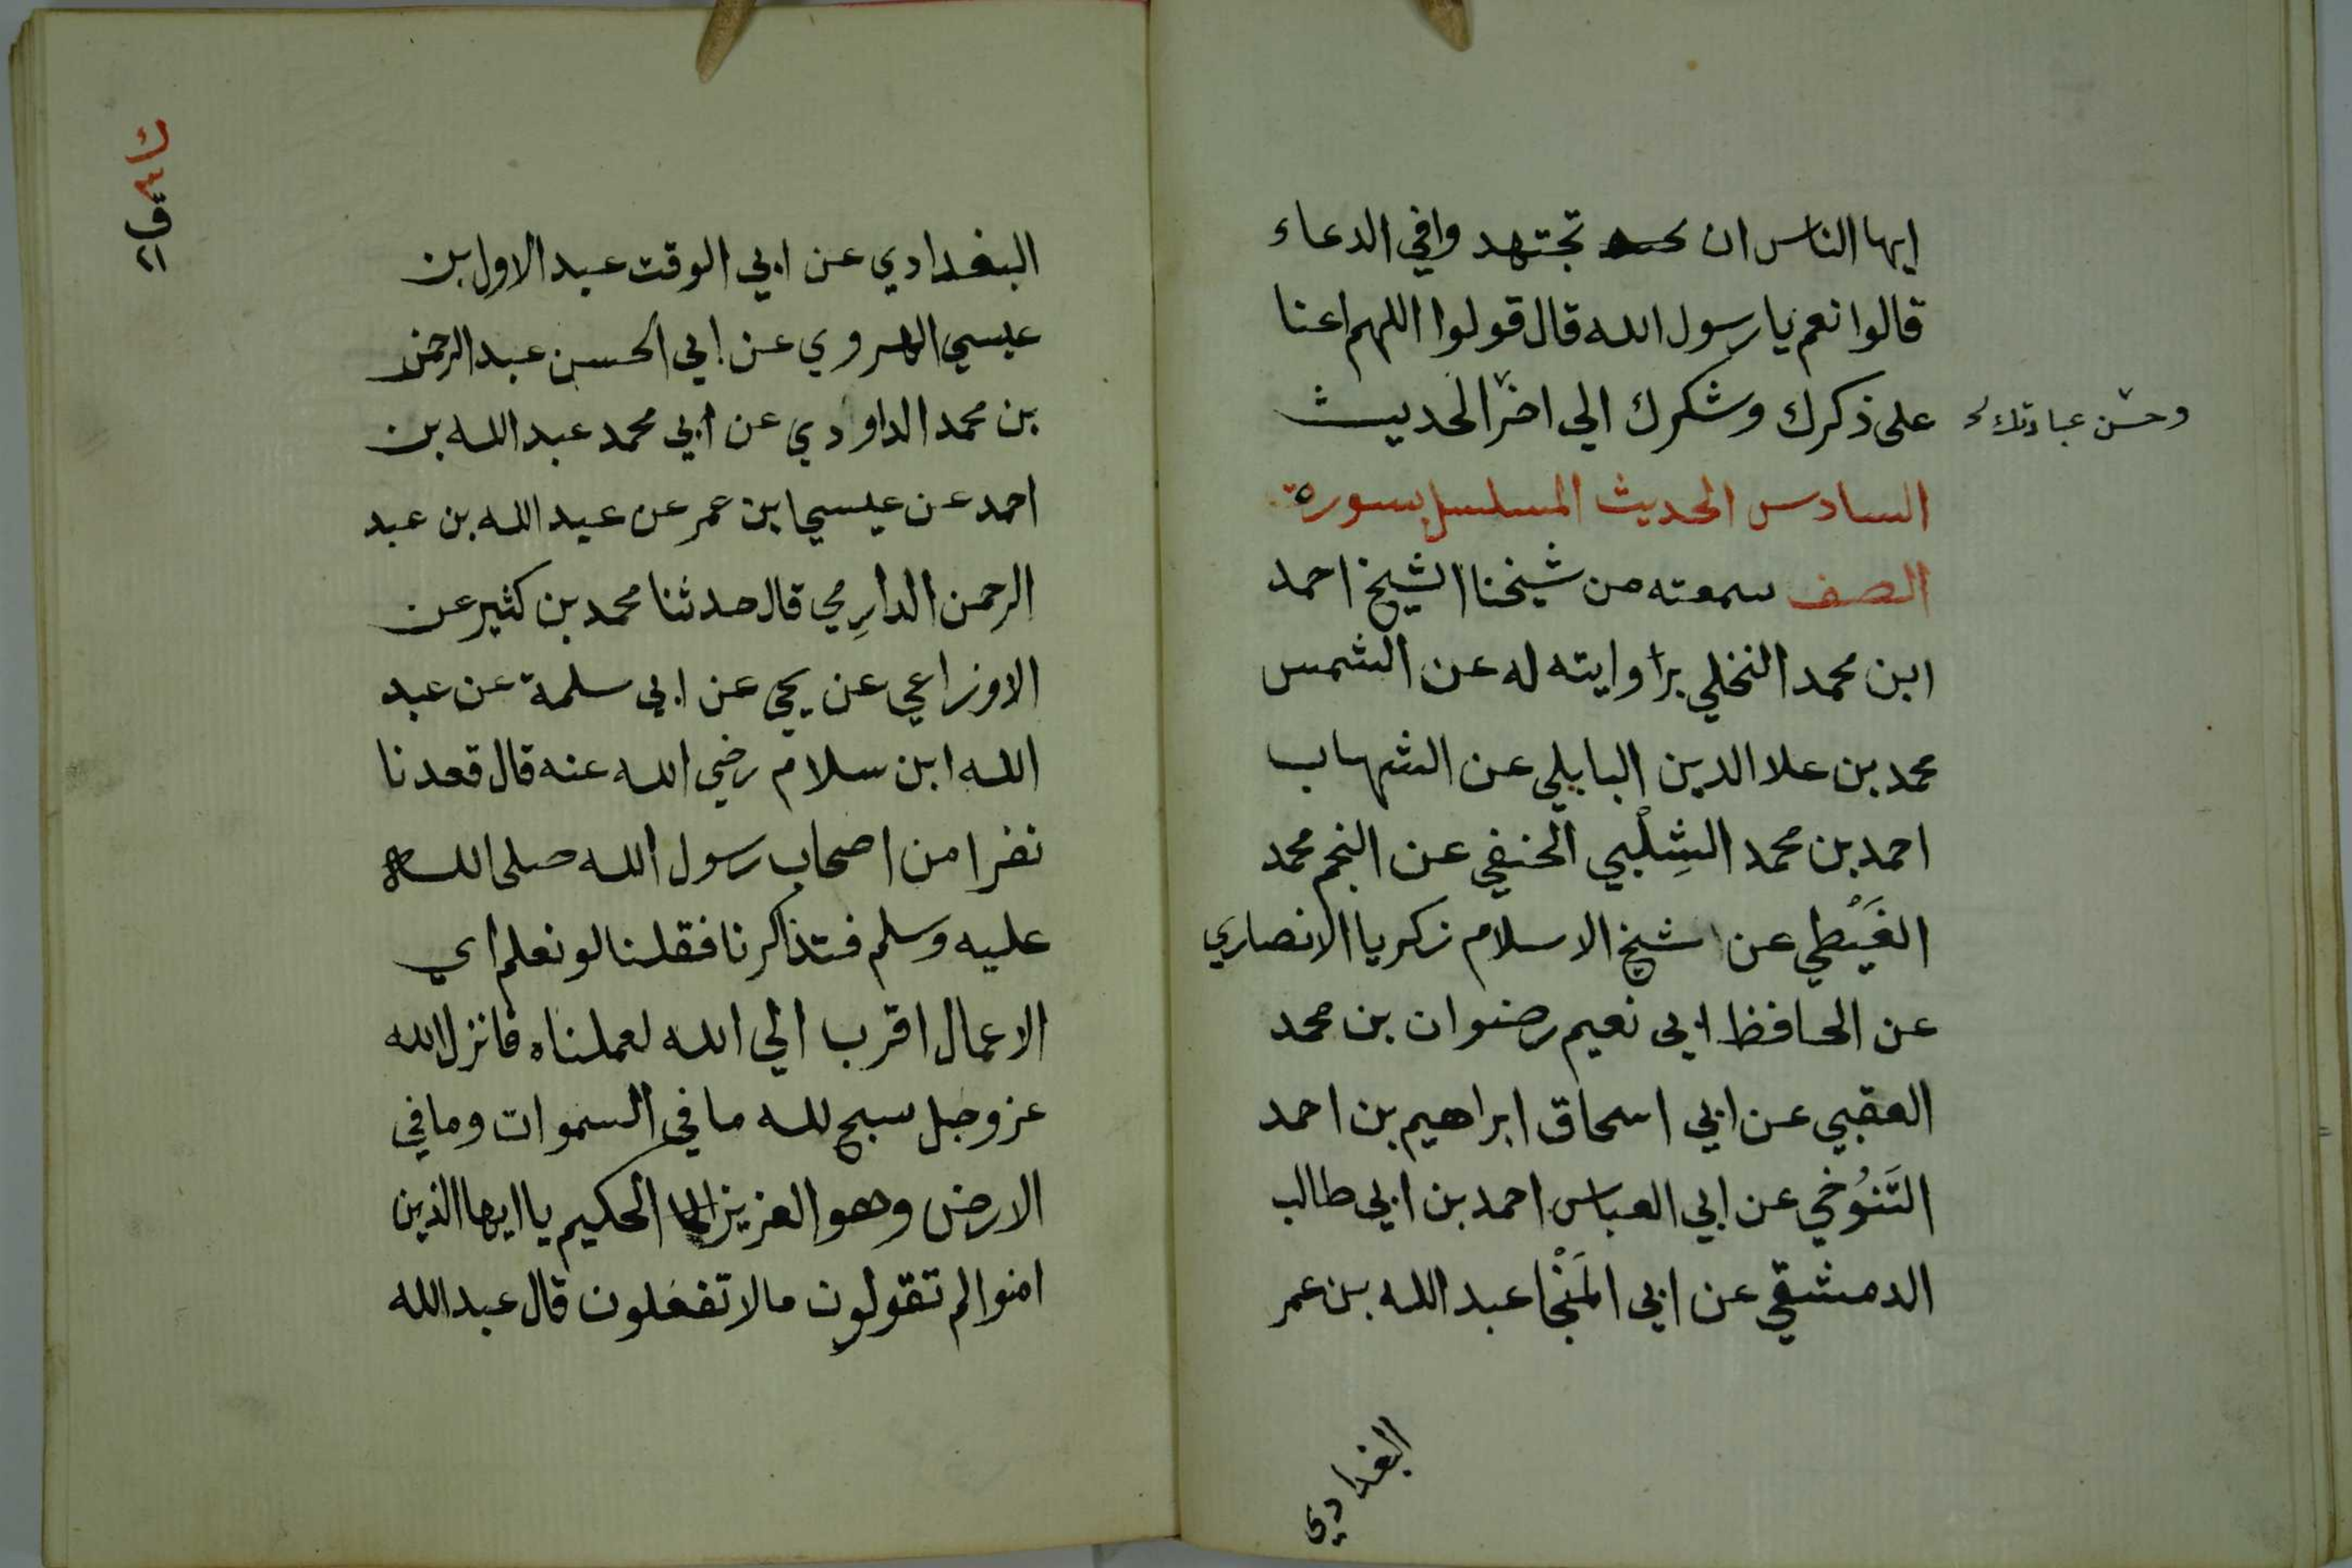 ايها الناس ان تجتهد وافي الدعاء
قالوا نعم يا رسول الله قال قولوا اللهم اعنا
على ذكرك وشكرك الي اخر الحديث
وحسن عبادتك
السادس الحديث المسلسل بسورة
الصف سمعته من شيخنا الشيخ احمد
ابن محمد النخلي براوايته له عن الشمس
محمد بن علا الدين البابلي عن الشهاب
احمد بن محمد الشِلْبي الحنفي عن النجم محمد
الغَيْطي عن شيخ الاسلام زكريا الانصاري
عن الحافظ ابي نعيم رضوان بن محمد
العقبي عن ابي اسحاق ابراهيم بن احمد
التَنُوخي عن ابي العباس احمد بن ابي طالب
الدمشقي عن ابي المَنْجا عبد الله بن عمر
البغدادي
البغدادي عن ابي الوقت عبد الاول بن
عيسي الهروي عن ابي الحسن عبد الرحمن
بن محمد الداودي عن ابي محمد عبد الله بن
احمد عن عيسي ابن عمر عن عبد الله بن عبد
الرحمن الدارِمي قال حدثنا محمد بن كثير عن
الاوزاعي عن يحي عن ابي سلمة عن عبد
الله ابن سلام رضي الله عنه قال قعدنا
نفرا من اصحاب رسول الله صلى الله
عليه وسلم فتذاكرنا فقلنا لو نعلم اي
الاعمال اقرب الي الله لعملناه فانزل الله
عز وجل سبح لله ما في السموات وما في
الارض وهو العزيز الحكيم يا ايها الذين
امنوا لم تقولون ما لا تفعلون قال عبد الله